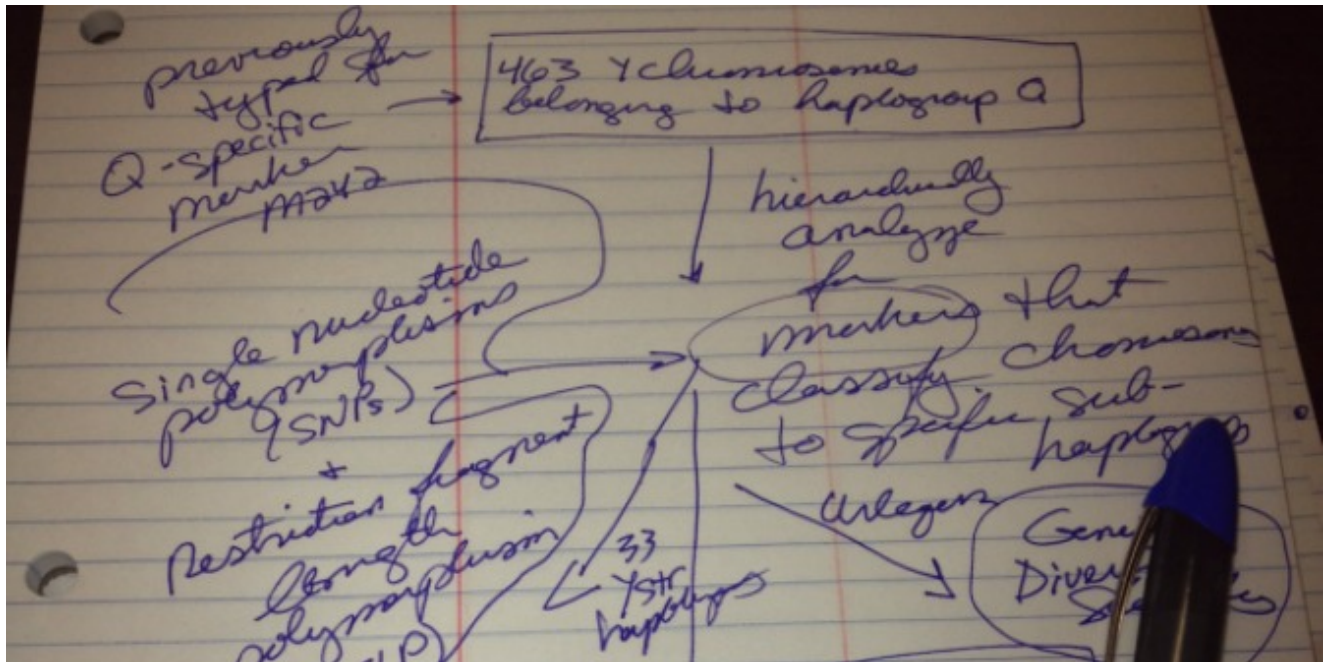 previously
typed for
Q-specific
marker
M242
463 Y chromosomes
belonging to haplogroup Q
hierarchically
analyze
for
markers that
classify chomosomes
to specific sub-
haplogroups
Single nucleotide
polymorphisms
(SNPs)
+
Restriction fragment
length
polymorphism
33
Ystr
haplotypes